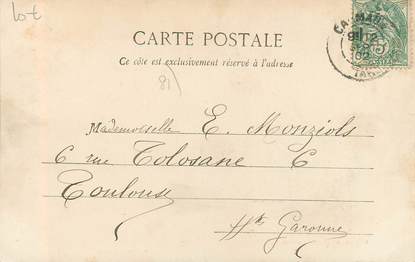 Lot
CARTE POSTALE
Ce côté est exclusivement réservé à l'adresse
81)
Mademoiselle E. Monziols
6 rue Tolosane 6
Toulouse
Hte Garonne